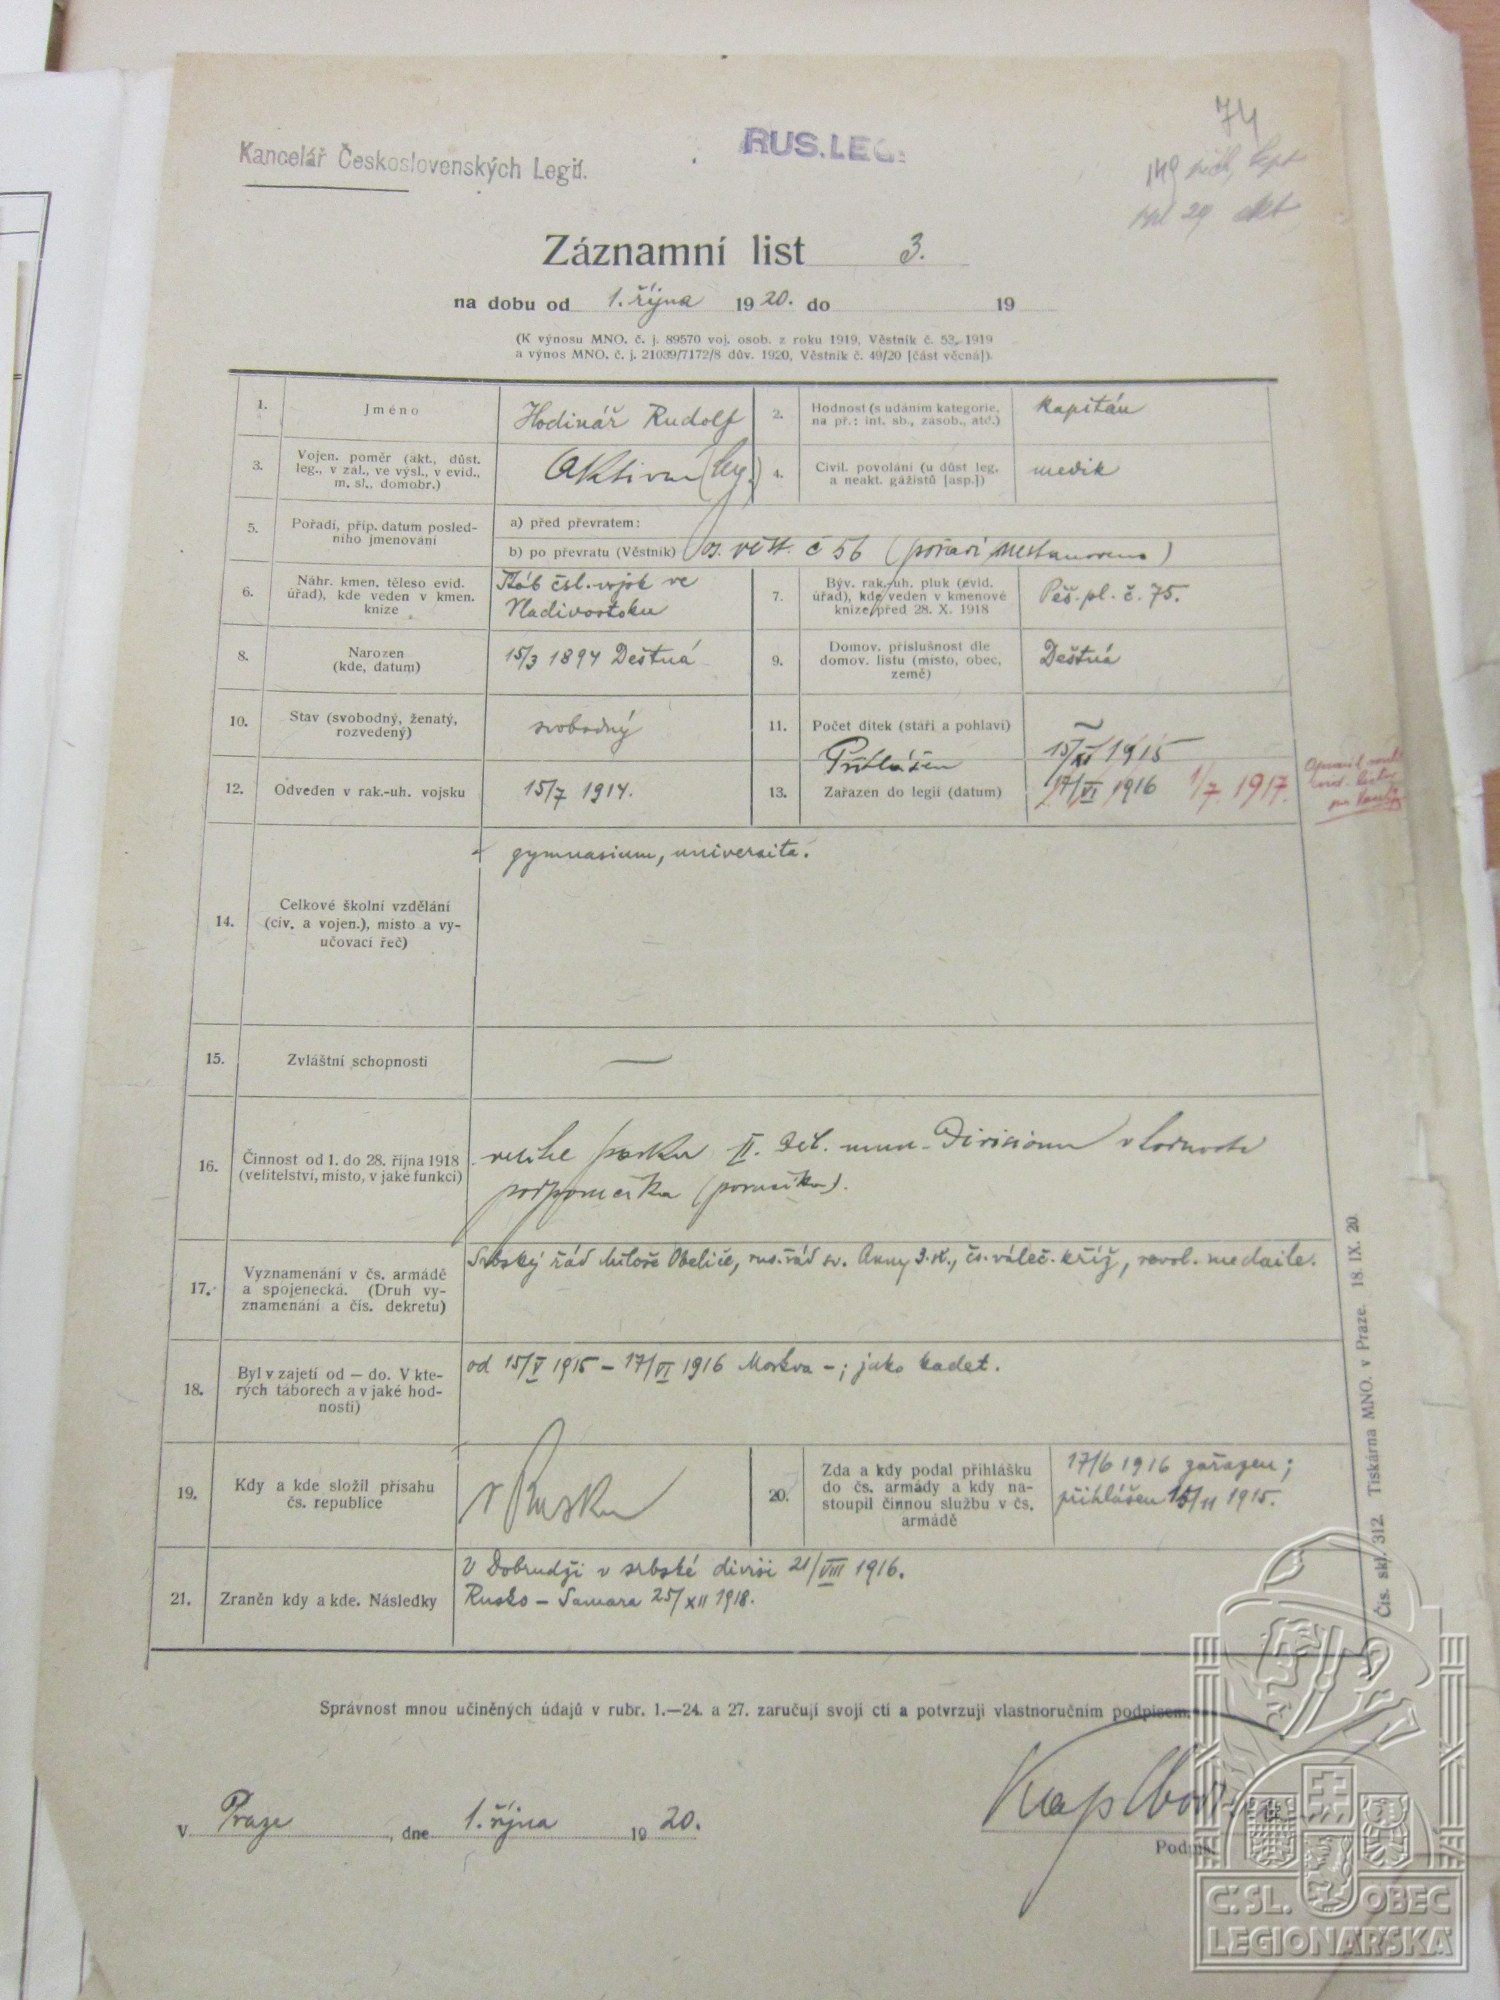 74
Kancelář Československých Legií.
RUS.LEG.
Záznamní list 3.
na dobu od 1. října 1920. do 19
(K výnosu MNO. č. j. 89570 voj. osob. z roku 1919, Věstník č. 53.-1919
a výnos MNO. č. j. 21039/7172/8 dův. 1920, Věstník č. 49/20 [část věcná]).
1. Jméno Hodinář Rudolf
2. Hodnost (s udáním kategorie, na př.: int. sb., zásob., atd.) kapitán
3. Vojen. poměr (akt., důst. leg., v zál., ve výsl., v evid., m. sl., domobr.) Aktivní (leg.)
4. Civil. povolání (u důst leg. a neakt. gážistů [asp.]) medik
5. Pořadí, příp. datum posledního jmenování
a) před převratem:
b) po převratu (Věstník) os. věst. č 56 (pořadí nestanoveno)
6. Náhr. kmen. těleso evid. úřad), kde veden v kmen. knize Štáb čsl. vojsk ve Vladivostoku
7. Býv. rak.-uh. pluk (evid. úřad), kde veden v kmenové knize před 28. X. 1918 Pěš. pl. č. 75.
8. Narozen (kde, datum) 15/3 1894 Deštná
9. Domov. příslušnost dle domov. listu (místo, obec, země) Deštná
10. Stav (svobodný, ženatý, rozvedený) svobodný
11. Počet dítek (stáří a pohlaví) –
Přihlášen 15/XI 1915
12. Odveden v rak.-uh. vojsku 15/7 1914.
13. Zařazen do legií (datum) 17/VI 1916 1/7. 1917.
14. Celkové školní vzdělání (civ. a vojen.), místo a vyučovací řeč) gymnasium, universita.
15. Zvláštní schopnosti —
16. Činnost od 1. do 28. října 1918 (velitelství, místo, v jaké funkci) velitel parku II. děl. mun. Divisionu v hodnosti
podporučíka (poručíka).
17. Vyznamenání v čs. armádě a spojenecká. (Druh vyznamenání a čís. dekretu) Srbský řád Miloše Obeliče, rus. řád sv. Anny 3. st., čs. váleč. kříž, revol. medaile.
18. Byl v zajetí od — do. V kterých táborech a v jaké hodnosti) od 15/V 1915 – 17/VI 1916 Moskva –; jako kadet.
19. Kdy a kde složil přísahu čs. republice v Rusku
20. Zda a kdy podal přihlášku do čs. armády a kdy nastoupil činnou službu v čs. armádě 17/6 1916 zařazen;
přihlášen 15/11 1915.
21. Zraněn kdy a kde. Následky V Dobrudži v srbské divisi 21/VIII 1916.
Rusko – Samara 25/XII 1918.
Čís. skl. 312. Tiskárna MNO. v Praze. 18. IX. 20.
Správnost mnou učiněných údajů v rubr. 1.—24. a 27. zaručuji svojí ctí a potvrzuji vlastnoručním podpisem.
v Praze, dne 1. října 1920.
Podpis.
Č.SL. OBEC
LEGIONÁŘSKÁ